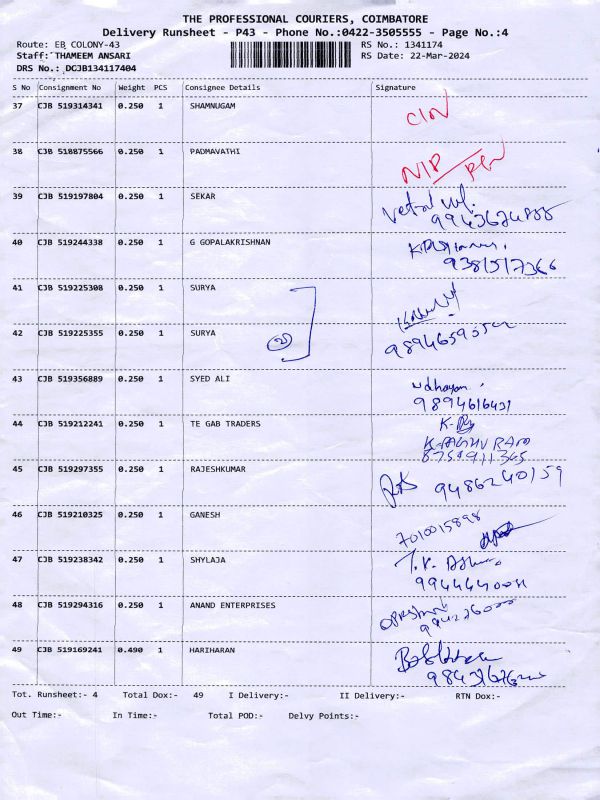 THE PROFESSIONAL COURIERS, COIMBATORE
Delivery Runsheet - P43 - Phone No.:0422-3505555 - Page No.:4
Route: EB COLONY-43 RS No.: 1341174
Staff: THAMEEM ANSARI RS Date: 22-Mar-2024
DRS No.: DCJB134117404
S No Consignment No Weight PCS Consignee Details Signature
37 CJB 519314341 0.250 1 SHAMNUGAM
38 CJB 518875566 0.250 1 PADMAVATHI
NIP
39 CJB 519197804 0.250 1 SEKAR
40 CJB 519244338 0.250 1 G GOPALAKRISHNAN
41 CJB 519225308 0.250 1 SURYA
42 CJB 519225355 0.250 1 SURYA
2
43 CJB 519356889 0.250 1 SYED ALI
Udhayan
9894616431
44 CJB 519212241 0.250 1 TE GAB TRADERS
45 CJB 519297355 0.250 1 RAJESHKUMAR
9486240159
46 CJB 519210325 0.250 1 GANESH
7010015898
47 CJB 519238342 0.250 1 SHYLAJA
48 CJB 519294316 0.250 1 ANAND ENTERPRISES
49 CJB 519169241 0.490 1 HARIHARAN
Tot. Runsheet:- 4 Total Dox:- 49 I Delivery:- II Delivery:- RTN Dox:-
Out Time:- In Time:- Total POD:- Delvy Points:-